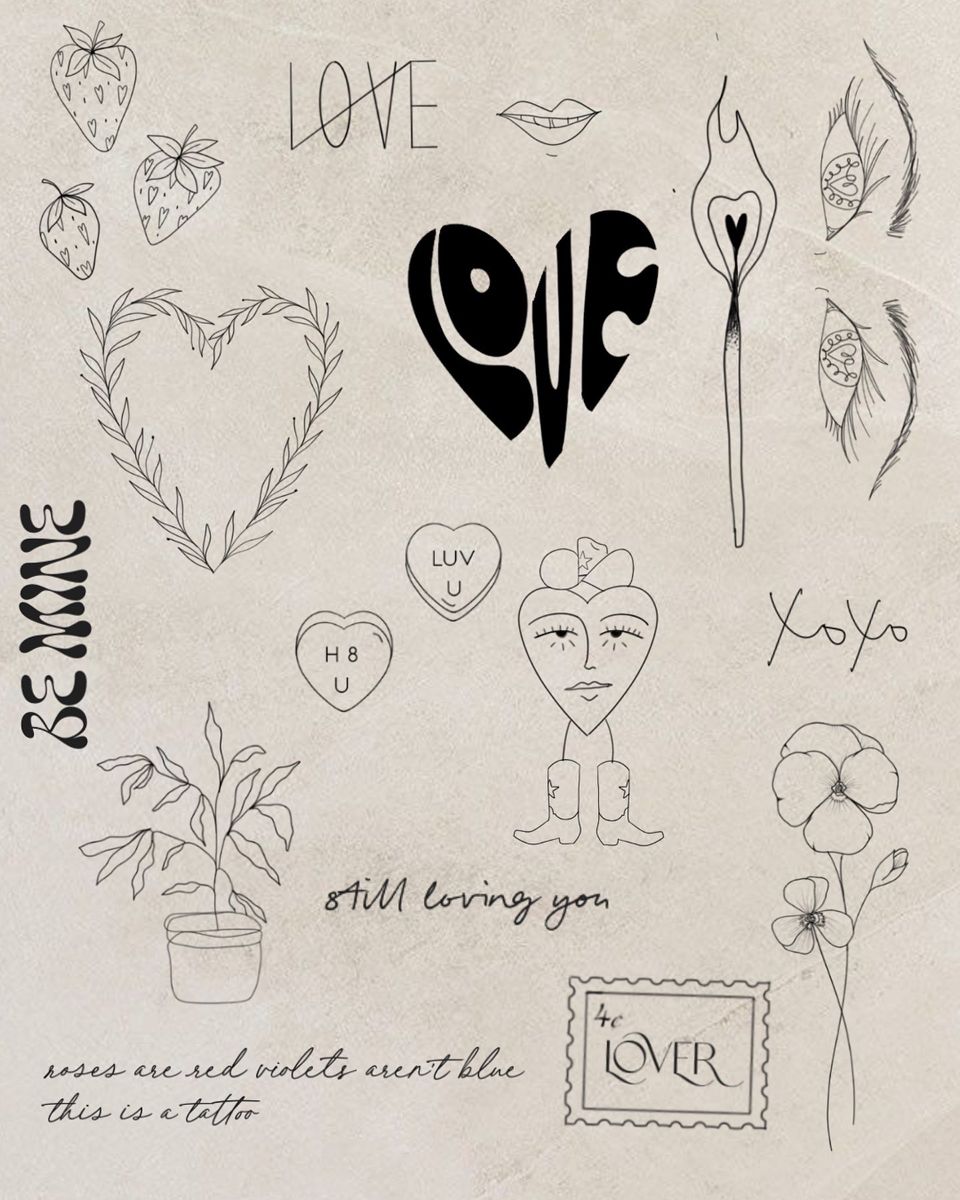 LOVE
LOVE
BE MINE
LUV
U
H 8
U
XoXo
still loving you
4c
LOVER
roses are red violets aren't blue
this is a tattoo